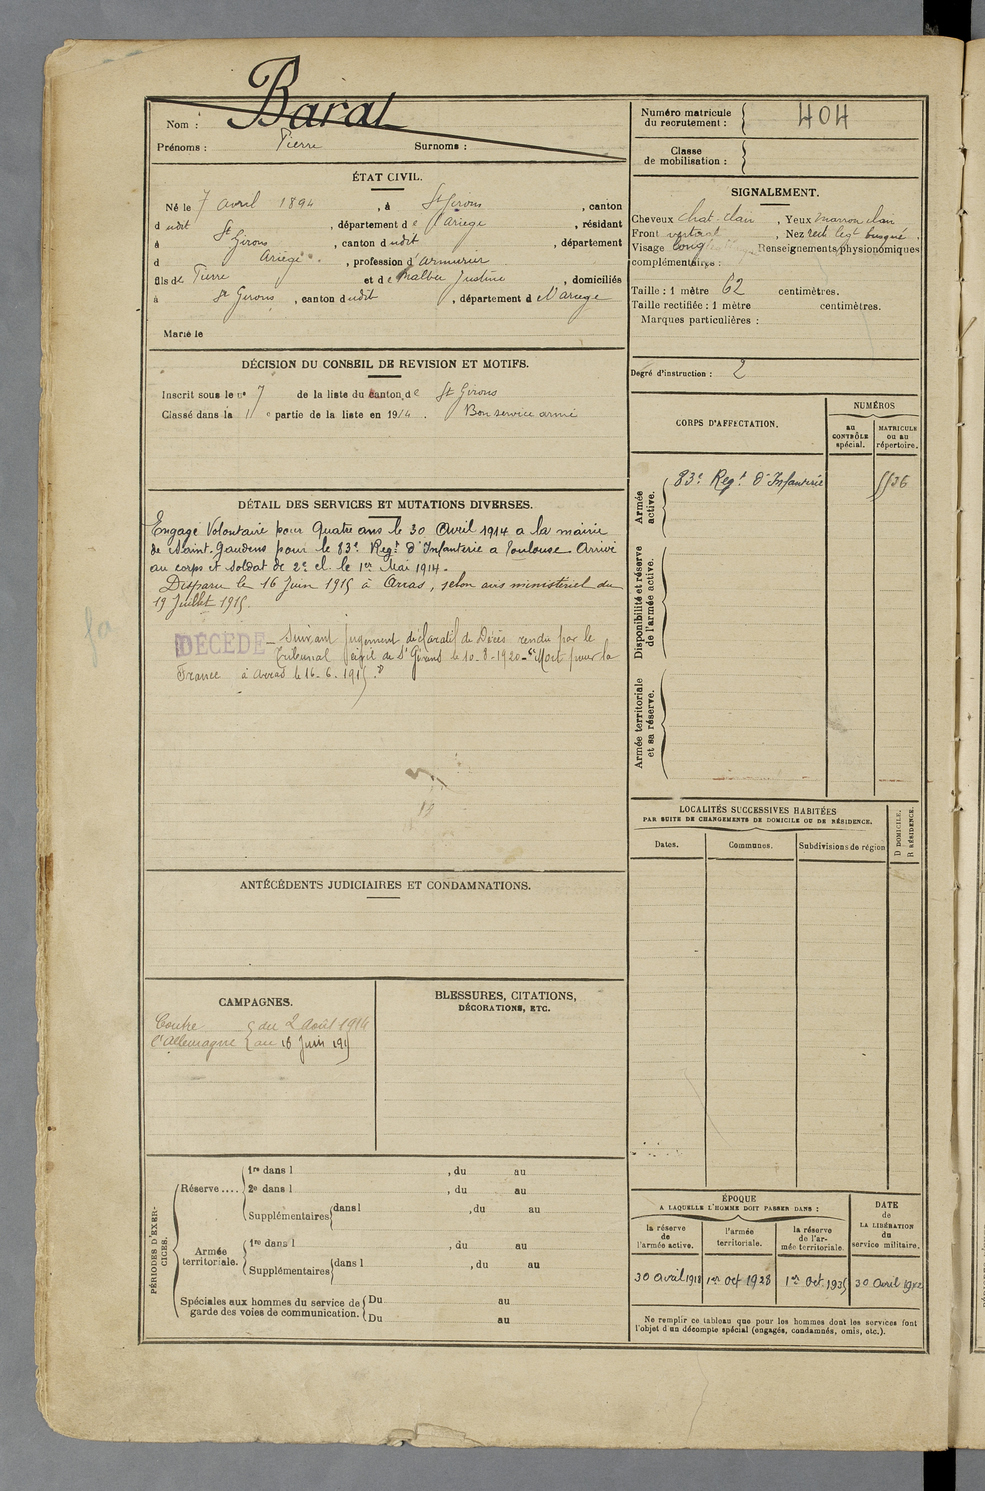 Nom : Baral
Prénoms : Pierre Surnoms :
Numéro matricule du recrutement : 404
Classe de mobilisation :
ÉTAT CIVIL.
Né le 7 avril 1894, à St Girons, canton
dudit St Girons, département de l'ariege, résidant
à St Girons, canton dudit, département
d Ariège, profession d'armurier
fils de Pierre et de Justine, domiciliés
à St Girons, canton dudit, département de l'ariege
Marié le
SIGNALEMENT.
Cheveux chat-clair, Yeux marron clair
Front vertical, Nez rect legt busqué.
Visage long Renseignements physionomiques
complémentaires :
Taille : 1 mètre 62 centimètres.
Taille rectifiée : 1 mètre centimètres.
Marques particulières :
Degré d'instruction : 2
DÉCISION DU CONSEIL DE REVISION ET MOTIFS.
Inscrit sous le no 7 de la liste du canton de St Girons
Classé dans la 1e partie de la liste en 1914. Bon service armé
CORPS D'AFFECTATION.
NUMÉROS
au CONTRÔLE spécial.
MATRICULE ou au répertoire.
Armée active.
83e Regt d'Infanterie 5536
Disponibilité et réserve de l'armée active.
Armée territoriale et sa réserve.
DÉTAIL DES SERVICES ET MUTATIONS DIVERSES.
Engagé Volontaire pour Quatre ans le 30 Avril 1914 a la mairie
de Saint-Gaudens pour le 83e Regt d'Infanterie a Toulouse. Arrivé
au corps et soldat de 2e cl. le 1er Mai 1914.
Disparu le 16 Juin 1915 à Arras, selon avis ministériel du
19 Juillet 1915.
DÉCÉDÉ - Suivant jugement déclaratif de Décès rendu par le
tribunal civil de St Girons le 10-8-1920 - "Mort pour la
France à Arras le 16-6-1915."
LOCALITÉS SUCCESSIVES HABITÉES
PAR SUITE DE CHANGEMENTS DE DOMICILE OU DE RÉSIDENCE.
Dates. Communes. Subdivisions de région
D DOMICILE.
R RÉSIDENCE.
ANTÉCÉDENTS JUDICIAIRES ET CONDAMNATIONS.
CAMPAGNES.
Contre du 2 Août 1914
l'Allemagne au 16 Juin 1915
BLESSURES, CITATIONS,
DÉCORATIONS, ETC.
PÉRIODES D'EXERCICES.
Réserve....
1re dans l , du au
2e dans l , du au
Supplémentaires dans l , du au
Armée territoriale.
1re dans l , du au
Supplémentaires dans l , du au
Spéciales aux hommes du service de Du au
garde des voies de communication. Du au
ÉPOQUE
A LAQUELLE L'HOMME DOIT PASSER DANS :
la réserve de l'armée active.
l'armée territoriale.
la réserve de l'armée territoriale.
DATE de LA LIBÉRATION du service militaire.
30 Avril 1918 1er Oct 1928 1er Oct. 1935 30 Avril 1942
Ne remplir ce tableau que pour les hommes dont les services font
l'objet d'un décompte spécial (engagés, condamnés, omis, etc.).